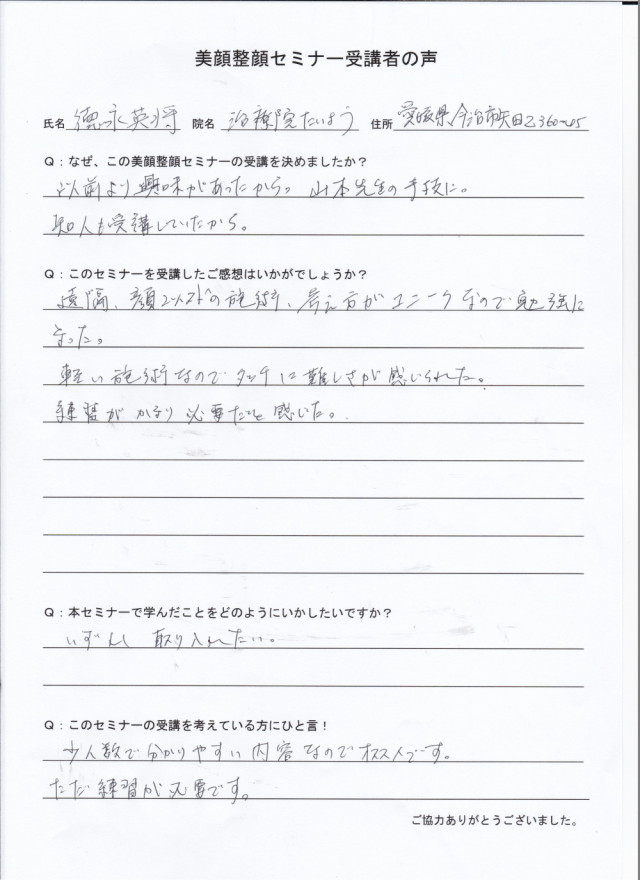 美顔整顔セミナー受講者の声
氏名 德永英将 院名 治療院たいよう 住所 愛媛県今治市矢田乙360-45
Q：なぜ、この美顔整顔セミナーの受講を決めましたか？
以前より興味があったから。山本先生の手技に。
知人も受講していたから。
Q：このセミナーを受講したご感想はいかがでしょうか？
遠隔、顔以外の施術、考え方がユニークなので勉強に
なった。
軽い施術なのでタッチに難しさが感じられた。
練習がかなり必要だと感じた。
Q：本セミナーで学んだことをどのようにいかしたいですか？
いずれ取り入れたい。
Q：このセミナーの受講を考えている方にひと言！
少人数で分かりやすい内容なのでオススメです。
ただ練習が必要です。
ご協力ありがとうございました。